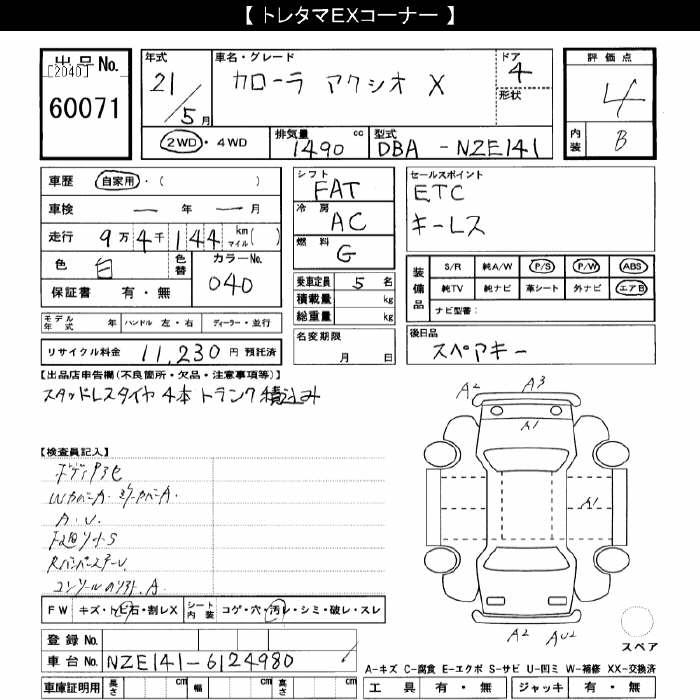 【 トレタマEXコーナー 】
出品No.
[2040]
60071
年式
21/5月
車名・グレード
カローラ アクシオ X
ドア
4
形状
2WD・4WD
排気量
1490 cc
型式
DBA - NZE141
評価点
4
内装
B
車歴 自家用・( )
車検 ー 年 ー 月
走行 9万4千144 km マイル( )
色 白 色替
カラーNo.
040
保証書 有・無
モデル年式 年 ハンドル 左・右 ディーラー・並行
リサイクル料金 11,230 円 預託済
シフト
FAT
冷房
AC
燃料
G
乗車定員 5 名
積載量 kg
総重量 kg
名変期限
月 日
セールスポイント
ETC
キーレス
装備品
S/R 純A/W P/S P/W ABS
純TV 純ナビ 革シート 外ナビ エアB
ナビ型番:
後日品
スペアキー
【出品店申告欄(不良箇所・欠品・注意事項等)】
スタッドレスタイヤ4本 トランク積込み
【検査員記入】
A・U
コンソール A
FW キズ・トビ石・割レX シート内装 コゲ・穴・汚レ・シミ・破レ・スレ
登録No.
車台No. NZE141-6124980
車庫証明用 長さ cm 幅 cm 高さ cm
A2 A3
A1
A1
A2 AU2
スペア
A-キズ C-腐食 E-エクボ S-サビ U-凹ミ W-補修 XX-交換済
工具 有・無 ジャッキ 有・無